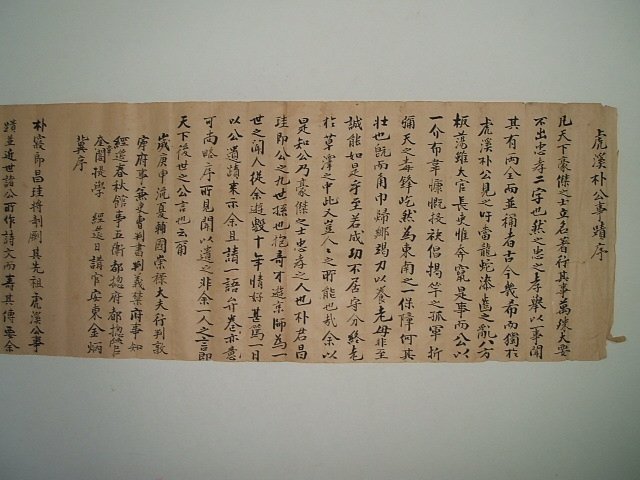 虎溪朴公事蹟序
凡天下豪傑之士立名著行其事萬殊大要
不出忠孝二字也然之忠之孝舉以事聞
其有兩全而並稱者古今幾希而獨於
虎溪朴公見之吁當龍蛇漆齒之亂八方
板蕩雖大官長吏惟奔竄是事而公以
一介布韋慷慨投袂倡揭竿之孤軍折
彌天之毒鋒屹然為東南之一保障何其
壯也旣而角巾歸鄕蠲刀以養老母非至
誠能如是乎至若成功不居守分終老
於草澤之中此又豈人之所能也哉余以
是知公乃豪傑之士忠孝之人也朴君昌
珪即公之九世孫也抱寿才遊京師為一
世之聞人從余遊殆十年情好甚篤一日
以公遺蹟來示余且請一語弁卷余意
可尚略序所見聞以遺之非余一人之言即
天下後世之公言也云爾
歲庚申流夏輔國崇祿大夫行判敦
寧府事兼吏曹判書判義禁府事知
經筵春秋館事五衛都摠府都摠管
奎閣提學 經筵日講官安東金炳
冀序
朴寢郎昌珪將剞劂其先祖虎溪公事
蹟並近世諸公所作諸文而壽其傳要余